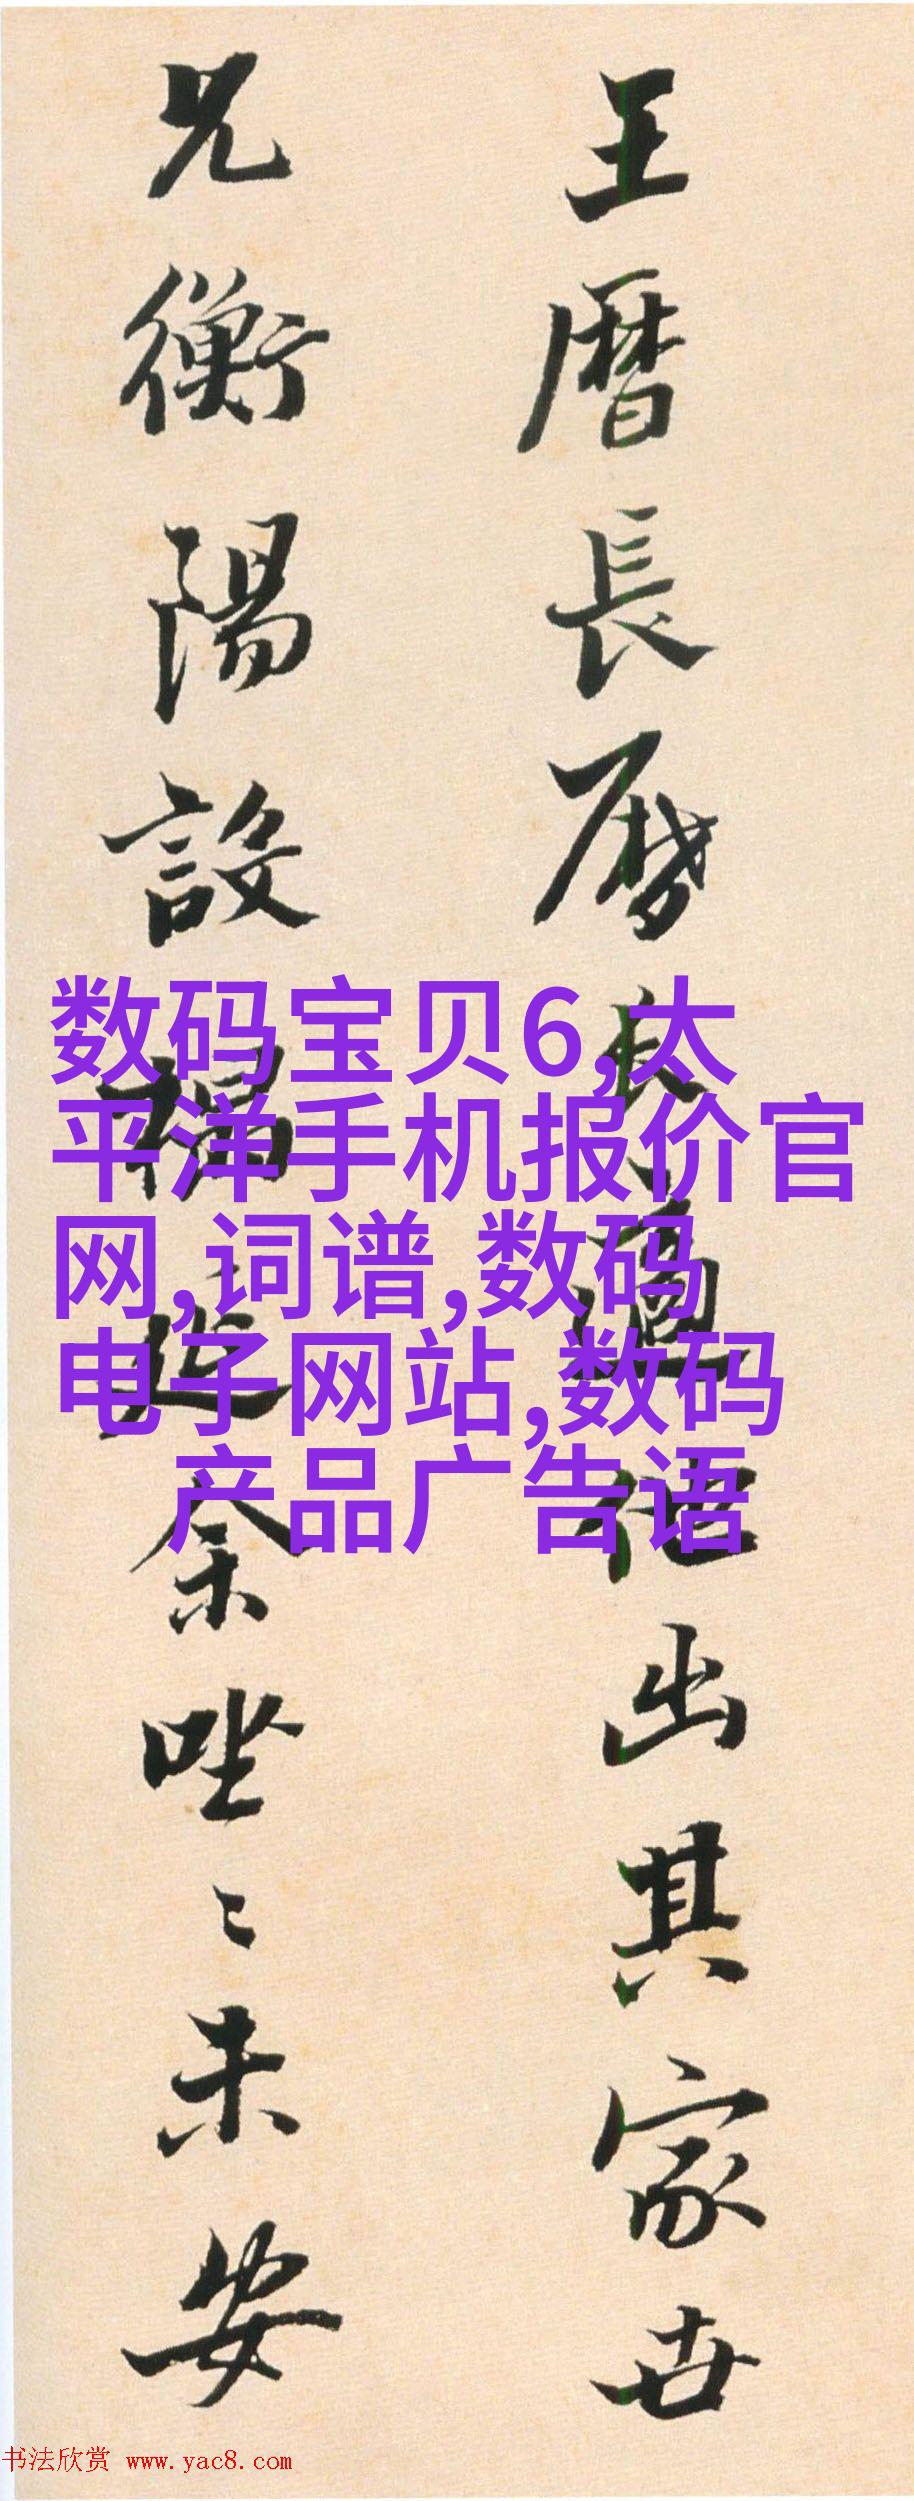 王曆長曆
出其家世
兄衡陽設榻延
余唑〻未安
数码宝贝6,太
平洋手机报价官
网,词谱,数码
电子网站,数码
产品广告语
书法欣赏 www.yac8.com